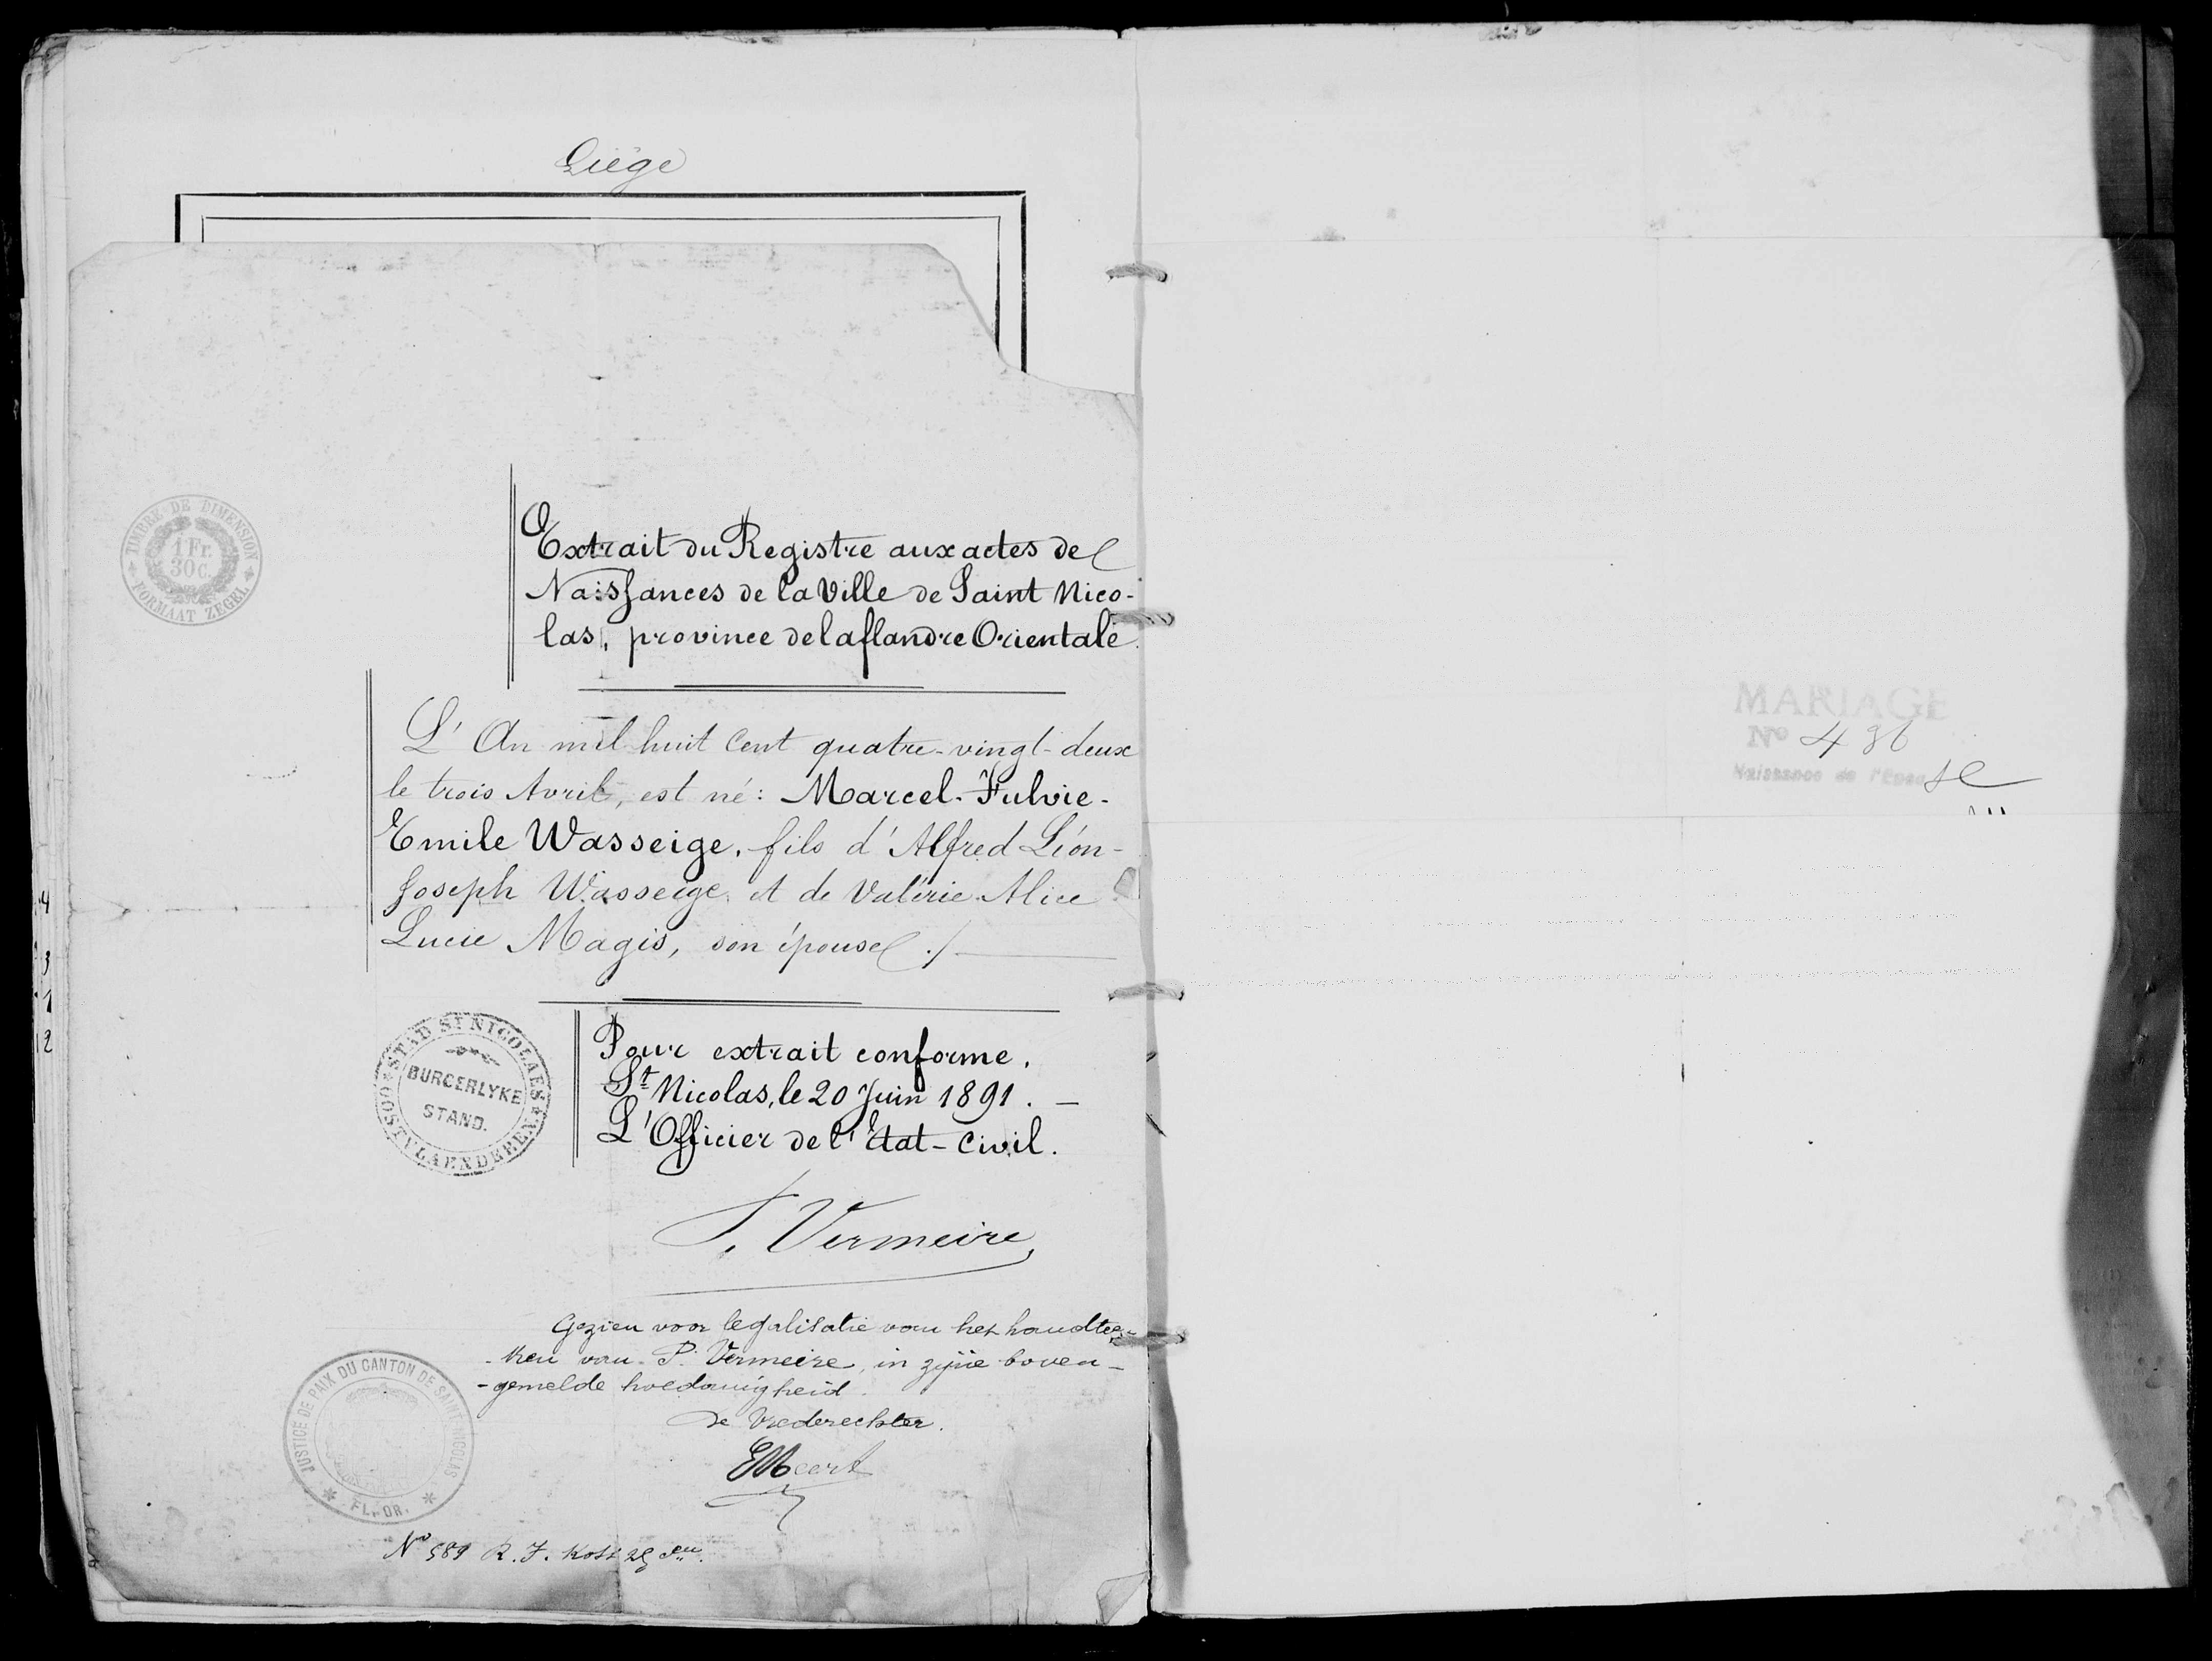 Liège
TIMBRE DE DIMENSION
1 Fr.
30 C.
FORMAAT ZEGEL
Extrait du Registre aux actes de
Naissances de la Ville de Saint Nico-
las, province de la flandre Orientale.
L'An mil huit Cent quatre-vingt-deux
le trois Avril, est né: Marcel-Fulvie-
Emile Wasseige, fils d'Alfred Léon-
Joseph Wasseige, et de Valérie Alice
Lucie Magis, son épouse ./
STAD ST NICOLAES
BURGERLYKE
STAND.
OOSTVLAENDEREN
Pour extrait conforme.
St Nicolas, le 20 Juin 1891. —
L'Officier de l'Etat-Civil.
P. Vermeire
Gezien voor legalisatie van het handtee-
-ken van P. Vermeire, in zijne boven-
-gemelde hoedanigheid.
De Vrederechter.
JUSTICE DE PAIX DU CANTON DE SAINT NICOLAS
FL. OR.
No 589 R. F. Kost 25
4
3
1
2
MARIAGE
No 436
Naissance de l'Epouse